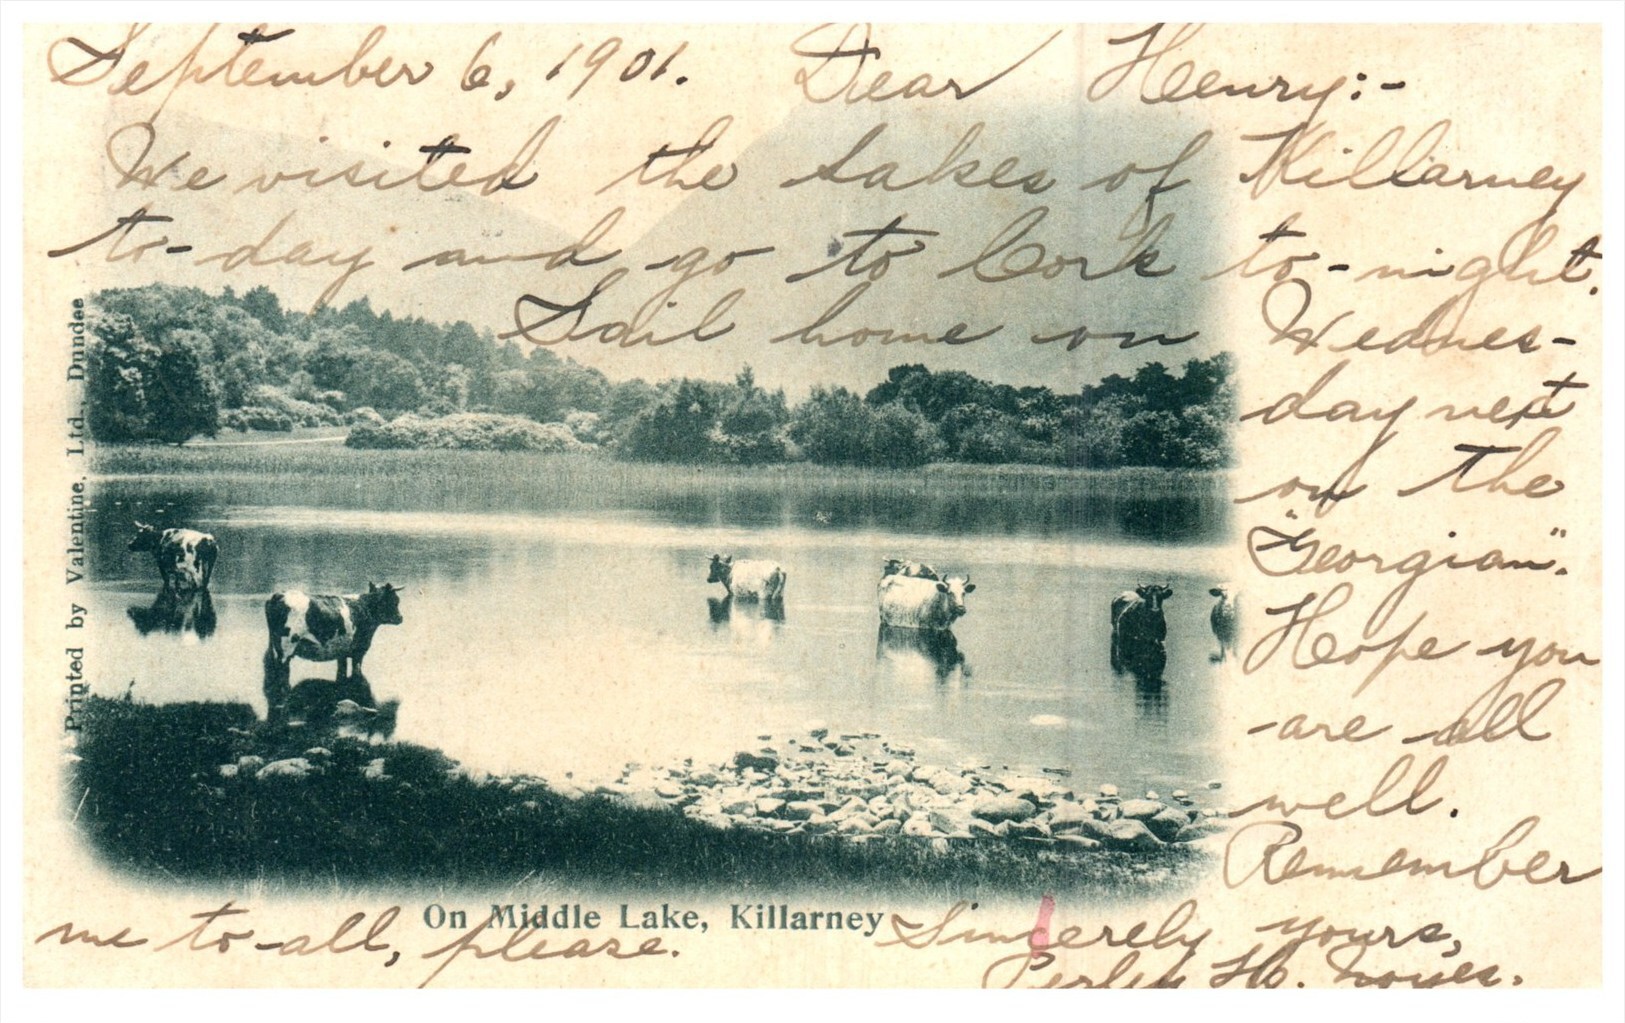 September 6, 1901. Dear Henry:-
We visited the Lakes of Killarney
to-day and go to Cork to-night.
Sail home on Wednes-
day next
on the
"Georgian".
Hope you
are all
well.
Remember
me to all, please.
Sincerely yours,
Perley H. Noyes.
On Middle Lake, Killarney
Printed by Valentine, Ltd., Dundee